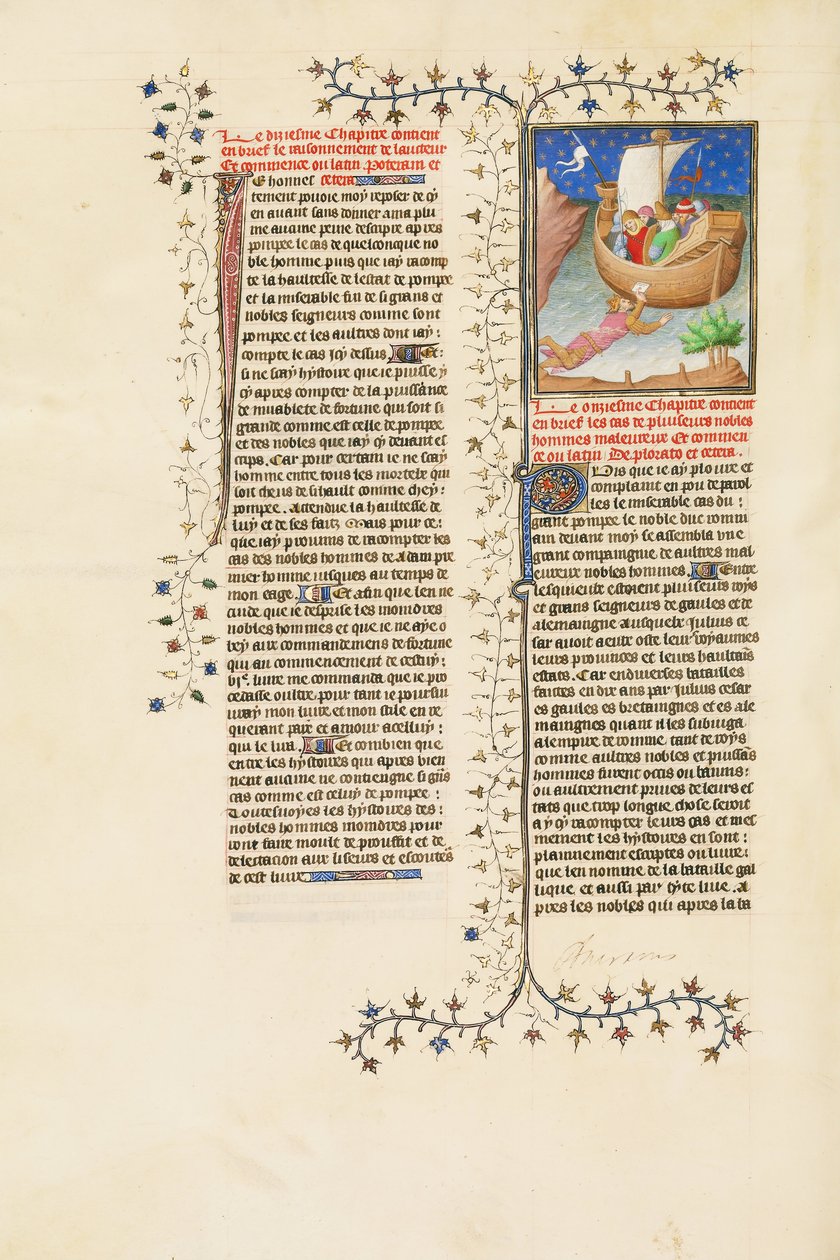 Le diziesme Chapitre contient
en brief le raisonnement de lauteur
Et commence ou latin. Poteram et
cetera
Ie honnes
tement pouoie moy reposer de cy
en auant sans donner a ma plu
me aucune peine descripre apres
pompee le cas de quelconque no
ble homme puis que iay racomp
te la haultesse de lestat de pompee
et la miserable fin de si grans et
nobles seigneurs comme sont
pompee et les aultres dont iay :
compte le cas icy dessus. Et :
si ne scay hystoire que ie puisse y
cy apres compter de la puissance
de muablete de fortune qui soit si
grande comme est celle de pompee
et des nobles que iay cy deuant es
crips. Car pour certain ie ne scay
homme entre tous les mortelz qui
soit cheus de si hault comme chey :
pompee. Attendue la haultesse de
luy et de ses faitz Mais pour ce :
que iay promis de racompter les
cas des nobles hommes de Adam pre
mier homme iusques au temps de
mon eage. Et afin que len ne
cuide que ie desprise les moindres
nobles hommes et que ie ne aye o
bey aux commandemens de fortune
qui au commencement de cestuy :
vi.e liure me commanda que ie pro
cedasse oultre pour tant ie poursui
uray mon liure et mon stile en re
querant paix et amour a celluy :
qui le lira. Et combien que
entre les hystoires qui apres vien
nent aucune ne contiengne si grans
cas comme est celuy de pompee :
Toutesuoyes les hystoires des :
nobles hommes moindres pour
ront faire moult de prouffit et de
delectacion aux liseurs et escouteurs
de cest liure
Le onziesme Chapitre contient
en brief les cas de pluiseurs nobles
hommes maleureux Et commen
ce ou latin Deplorato et cetera.
Puis que ie ay ploure et
complaint en pou de parol
les le miserable cas du :
grant pompee le noble duc rommain
ain deuant moy se assembla vne
grant compaingnie de aultres mal
eureux nobles hommes. Entre
lesquieulx estoient pluiseurs roys
et grans seigneurs de gaules et de
alemaingne ausquelz Iulius ce
sar auoit a eulx oste leur royaumes
leurs prouinces et leurs haultains
estats. Car en diuerses batailles
faictes en dix ans par Iulius cesar
es gaules es bretaingnes et es ale
maingnes quant il les subiuga
a lempire de romme tant de roys
comme aultres nobles et puissans
hommes furent occis ou banniz :
ou aultrement priues de leurs es
tats que trop longue chose seroit
a y cy racompter leurs cas et mes
mement les hystoires en sont :
plainnement escriptes ou liure :
que len nomme de la bataille gal
lique et aussi par tyte liue. A
pres les nobles qui apres la ba